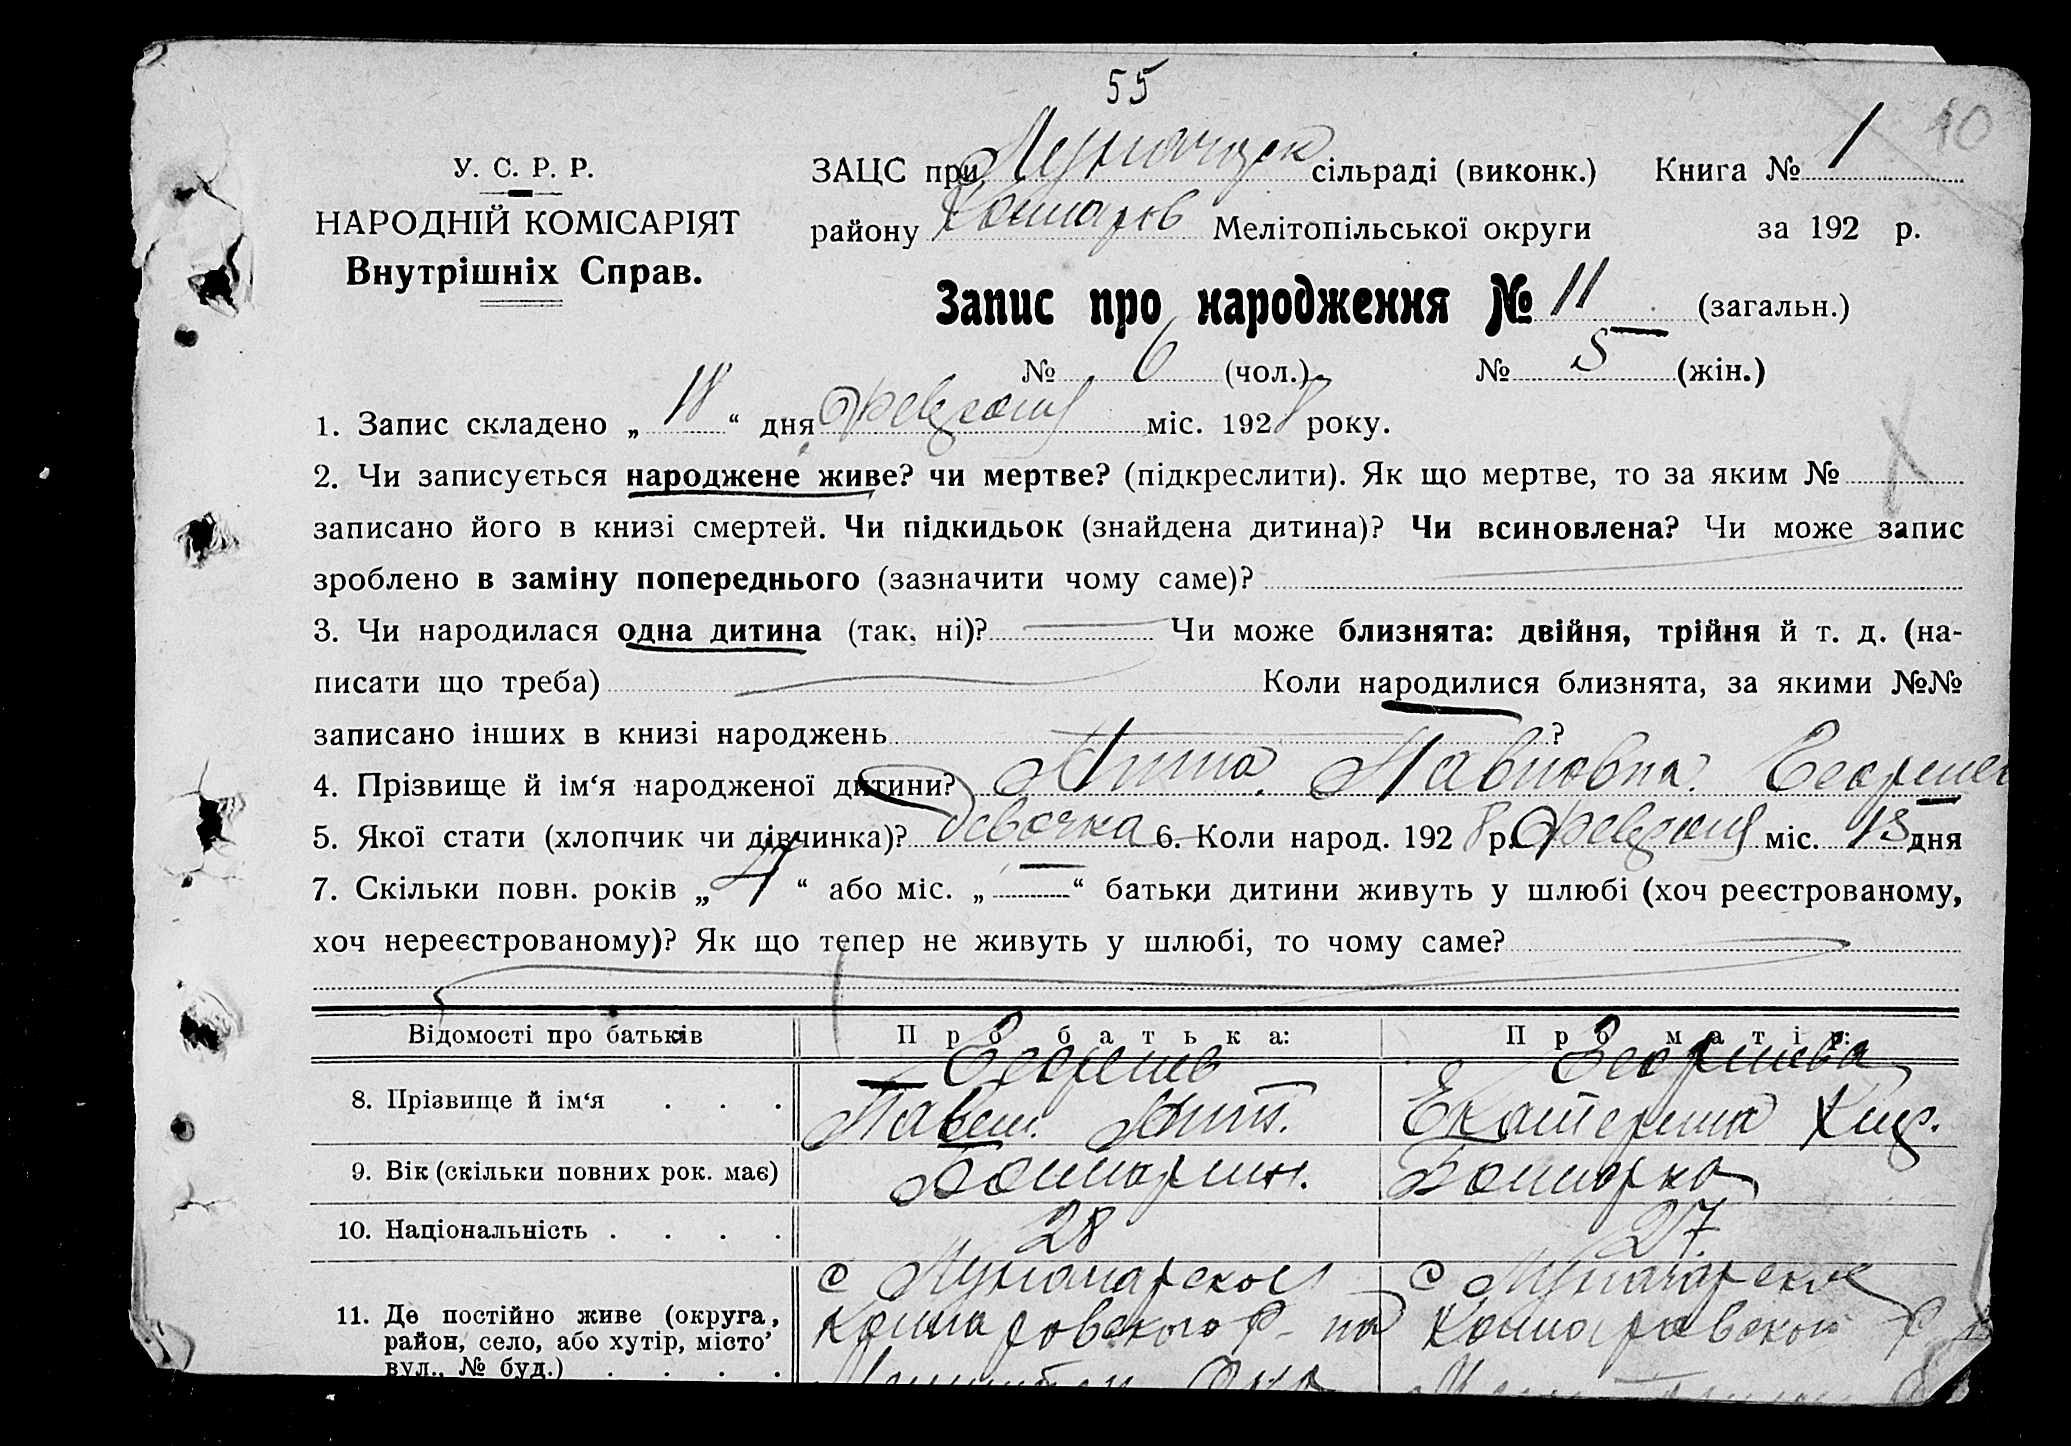 55
10
У. С. Р. Р.
НАРОДНІЙ КОМІСАРІЯТ
Внутрішніх Справ.
ЗАЦС при сільраді (виконк.) Книга № 1
району Мелітопільської округи за 192 р.
Запис про народження № 11 (загальн.)
№ 6 (чол.) № 5 (жін.)
1. Запис складено „ 18 “ дня Февраля міс. 1928 року.
2. Чи записується народжене живе? чи мертве? (підкреслити). Як що мертве, то за яким №
записано його в книзі смертей. Чи підкидьок (знайдена дитина)? Чи всиновлена? Чи може запис
зроблено в заміну попереднього (зазначити чому саме)?
3. Чи народилася одна дитина (так, ні)? Чи може близнята: двійня, трійня й т. д. (на-
писати що треба) Коли народилися близнята, за якими №№
записано інших в книзі народжень ?
4. Прізвище й ім‘я народженої дитини? Анна Павловна
5. Якої стати (хлопчик чи дівчинка)? девочка 6. Коли народ. 1928 р. Февраля міс. 13 дня
7. Скільки повн. років „ “ або міс. „ — “ батьки дитини живуть у шлюбі (хоч реєстрованому,
хоч нереєстрованому)? Як що тепер не живуть у шлюбі, то чому саме?
Відомості про батьків Про батька: Про матір:
8. Прізвище й ім‘я . . . Павел Ант. Екатерина
9. Вік (скільки повних рок. має) Болгарин. Болгарка
10. Національність . . . . 28 27
11. Де постійно живе (округа, с Луначарское с Луначарское
район, село, або хутір, місто’
вул., № буд.) . . . .